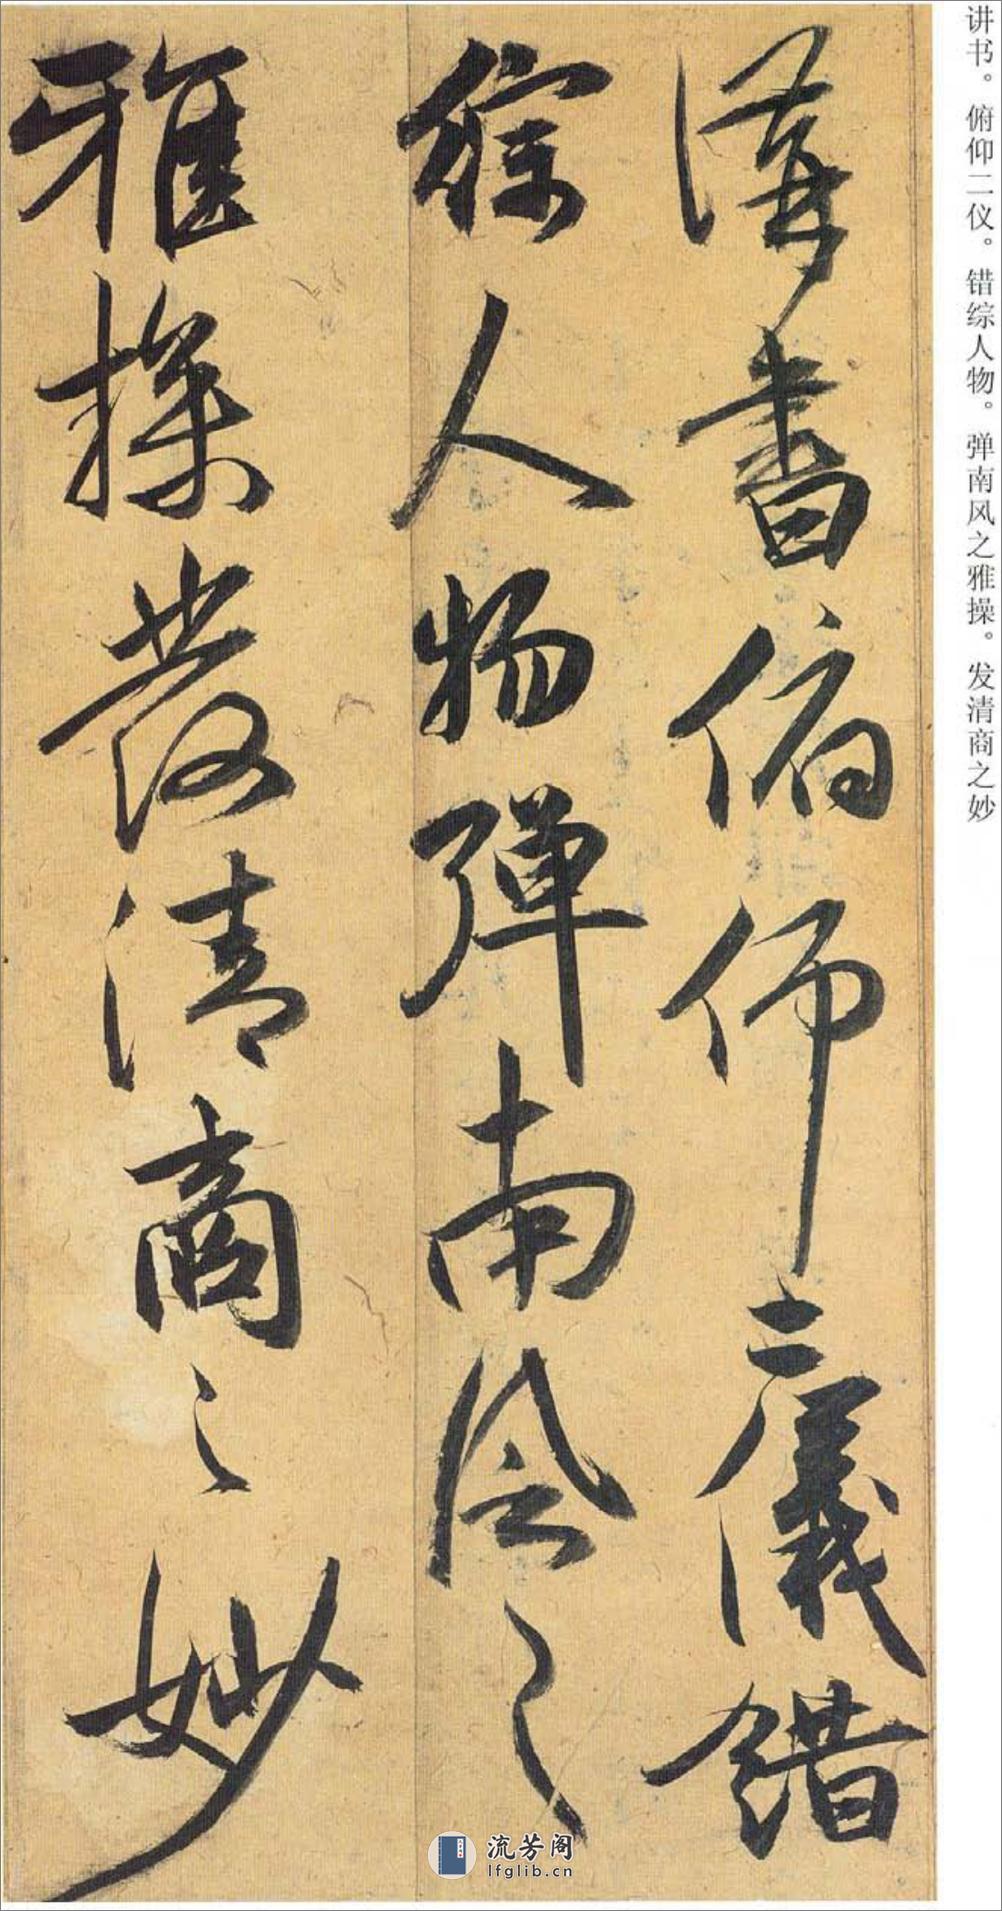 讲书。俯仰二仪。错综人物。弹南风之雅操。发清商之妙
講書俯仰二儀錯
綜人物彈南風之
雅操發清商之妙
流芳阁
lfglib.cn